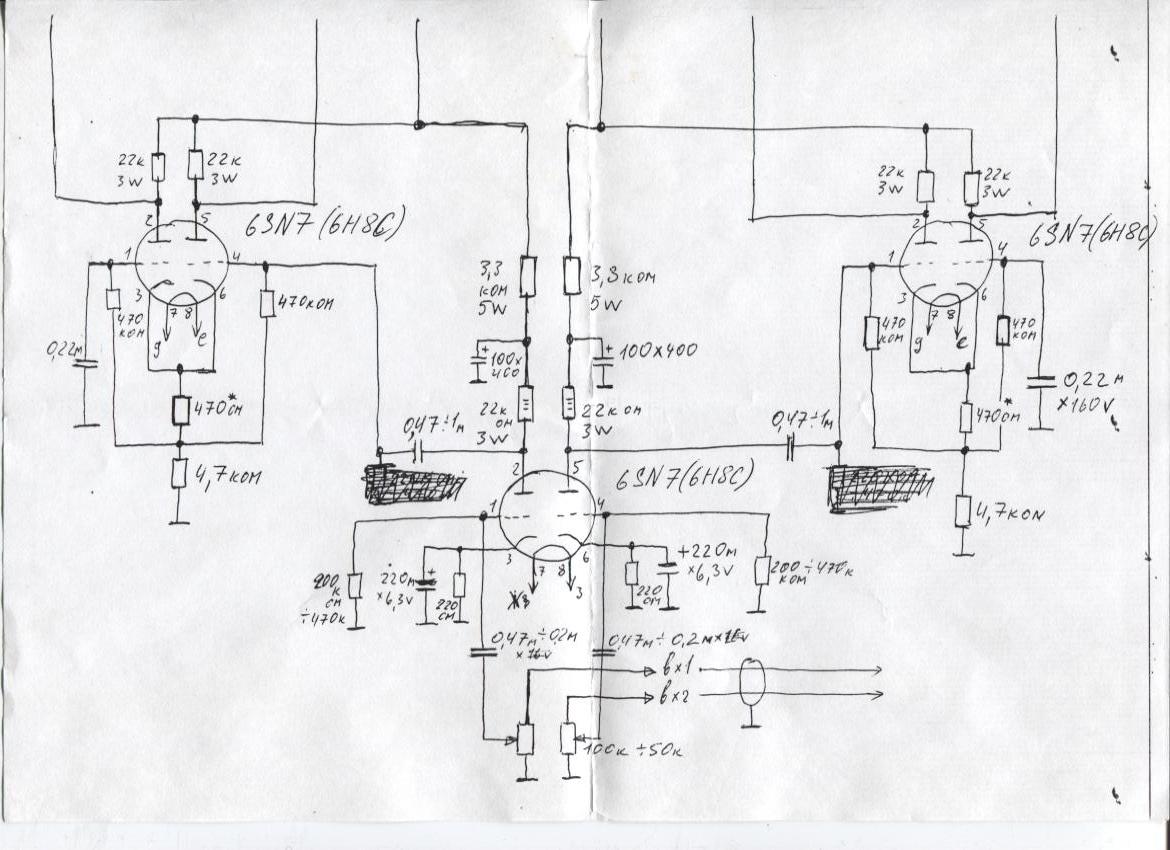 22к
3W
22к
3W
2
5
6SN7 (6Н8С)
1
4
3
6
7
8
470
ком
470ком
0,22м
470 ом*
4,7ком
3,3
ком
5W
3,3 ком
5W
+
100х
400
+
100х400
22к
ом
3W
22к ом
3W
0,47÷1м
0,47÷1м
22к
3W
22к
3W
2
5
6SN7 (6Н8С)
1
4
3
6
7
8
470
ком
470
ком
0,22м
х160V
470 ом*
4,7ком
2
5
6SN7 (6Н8С)
1
4
3
6
7
8
3
200
к
ом
÷470к
220м
х6,3V
+
220
ом
220
ом
+220м
х6,3V
200÷470к
ком
0,47м÷0,2м
0,47м÷0,2м
вх1
вх2
100к÷50к